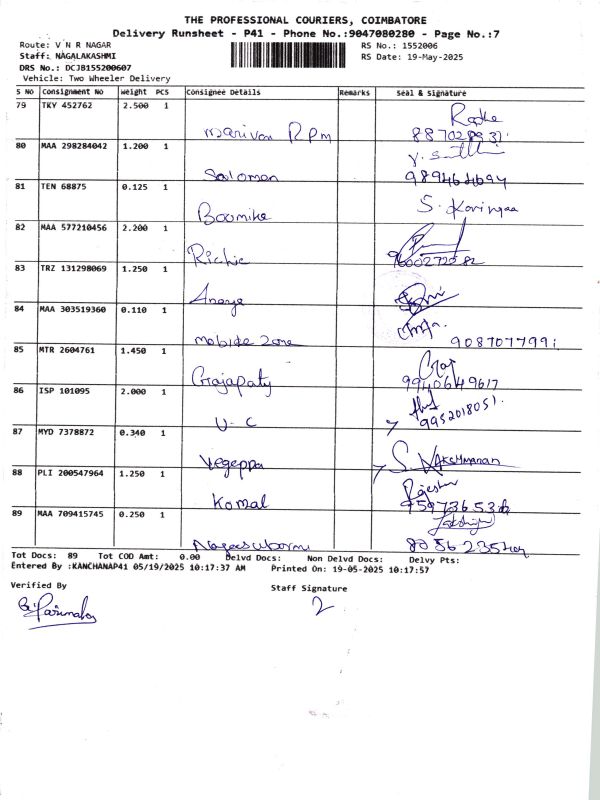 THE PROFESSIONAL COURIERS, COIMBATORE
Delivery Runsheet - P41 - Phone No.:9047080280 - Page No.:7
Route: V N R NAGAR RS No.: 1552006
Staff: NAGALAKASHMI RS Date: 19-May-2025
DRS No.: DCJB155200607
Vehicle: Two Wheeler Delivery
S NO Consignment No Weight PCS Consignee Details Remarks Seal & Signature
79 TKY 452762 2.500 1
manivan RPM
80 MAA 298284042 1.200 1
Solomon
81 TEN 68875 0.125 1
Boomika S.
82 MAA 577210456 2.200 1
Richie
83 TRZ 131298069 1.250 1
Ananya
84 MAA 303519360 0.110 1
mobile zone
85 MTR 2604761 1.450 1
Gajapaty 9940649617
86 ISP 101095 2.000 1
U-C 9952018051.
87 MYD 7378872 0.340 1
Vegeppa S. LAKSHMANAN
88 PLI 200547964 1.250 1
Komal
89 MAA 709415745 0.250 1
Tot Docs: 89 Tot COD Amt: 0.00 Delvd Docs: Non Delvd Docs: Delvy Pts:
Entered By :KANCHANAP41 05/19/2025 10:17:37 AM Printed On: 19-05-2025 10:17:57
Verified By
Staff Signature